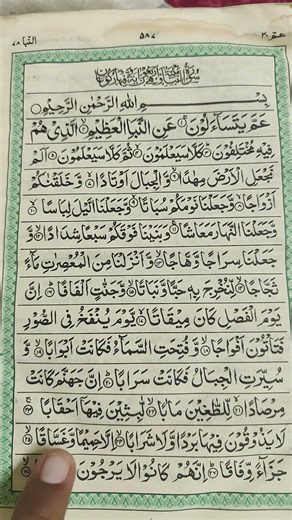 عم ٣٠ ٥٨٧ النبا ٧٨
بِسْمِ اللهِ الرَّحْمٰنِ الرَّحِيْمِ
عَمَّ يَتَسَآءَلُوْنَ ۚ عَنِ النَّبَاِ الْعَظِيْمِ ۙ الَّذِيْ هُمْ
فِيْهِ مُخْتَلِفُوْنَ ؕ كَلَّا سَيَعْلَمُوْنَ ۙ ثُمَّ كَلَّا سَيَعْلَمُوْنَ ۟ اَلَمْ
نَجْعَلِ الْاَرْضَ مِهٰدًا ۙ وَّالْجِبَالَ اَوْتَادًا ۪ وَّخَلَقْنٰكُمْ
اَزْوَاجًا ۙ وَّجَعَلْنَا نَوْمَكُمْ سُبَاتًا ۙ وَّجَعَلْنَا الَّيْلَ لِبَاسًا ۙ
وَّجَعَلْنَا النَّهَارَ مَعَاشًا ۪ وَّبَنَيْنَا فَوْقَكُمْ سَبْعًا شِدَادًا ۙ وَّ
جَعَلْنَا سِرَاجًا وَّهَّاجًا ۪ وَّاَنْزَلْنَا مِنَ الْمُعْصِرٰتِ مَآءً
ثَجَّاجًا ۙ لِّنُخْرِجَ بِهٖ حَبًّا وَّنَبَاتًا ۙ وَّجَنّٰتٍ اَلْفَافًا ؕ اِنَّ
يَوْمَ الْفَصْلِ كَانَ مِيْقَاتًا ۙ يَّوْمَ يُنْفَخُ فِي الصُّوْرِ
فَتَاْتُوْنَ اَفْوَاجًا ۙ وَّفُتِحَتِ السَّمَآءُ فَكَانَتْ اَبْوَابًا ۙ وَّ
سُيِّرَتِ الْجِبَالُ فَكَانَتْ سَرَابًا ؕ اِنَّ جَهَنَّمَ كَانَتْ
مِرْصَادًا ۙ لِّلطّٰغِيْنَ مَاٰبًا ۙ لّٰبِثِيْنَ فِيْهَاۤ اَحْقَابًا ۚ
لَا يَذُوْقُوْنَ فِيْهَا بَرْدًا وَّلَا شَرَابًا ۙ اِلَّا حَمِيْمًا وَّغَسَّاقًا ۙ
جَزَآءً وِّفَاقًا ؕ اِنَّهُمْ كَانُوْا لَا يَرْجُوْنَ